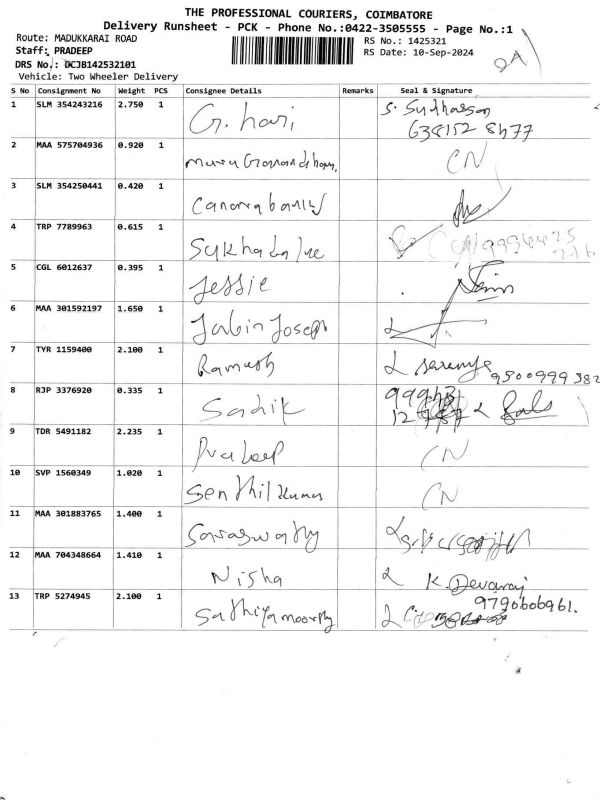 THE PROFESSIONAL COURIERS, COIMBATORE
Delivery Runsheet - PCK - Phone No.:0422-3505555 - Page No.:1
Route: MADUKKARAI ROAD
RS No.: 1425321
Staff: PRADEEP
RS Date: 10-Sep-2024
DRS No.: DCJB142532101
Vehicle: Two Wheeler Delivery
S No Consignment No Weight PCS Consignee Details Remarks Seal & Signature
1 SLM 354243216 2.750 1 G. hari S. Sudharson
638152 8477
2 MAA 575704936 0.920 1 CN
3 SLM 354250441 0.420 1 Canara bank
4 TRP 7789963 0.615 1
5 CGL 6012637 0.395 1 Jessie
6 MAA 301592197 1.650 1 Jabin Joseph
7 TYR 1159400 2.100 1 Ramesh 9500999382
8 RJP 3376920 0.335 1 Sadik
9 TDR 5491182 2.235 1 Pradeep CN
10 SVP 1560349 1.020 1 Senthil Kumar CN
11 MAA 301883765 1.400 1 Saraswathy
12 MAA 704348664 1.410 1 Nisha K. Devaraj
9790606961.
13 TRP 5274945 2.100 1 Sathiyamoorthy